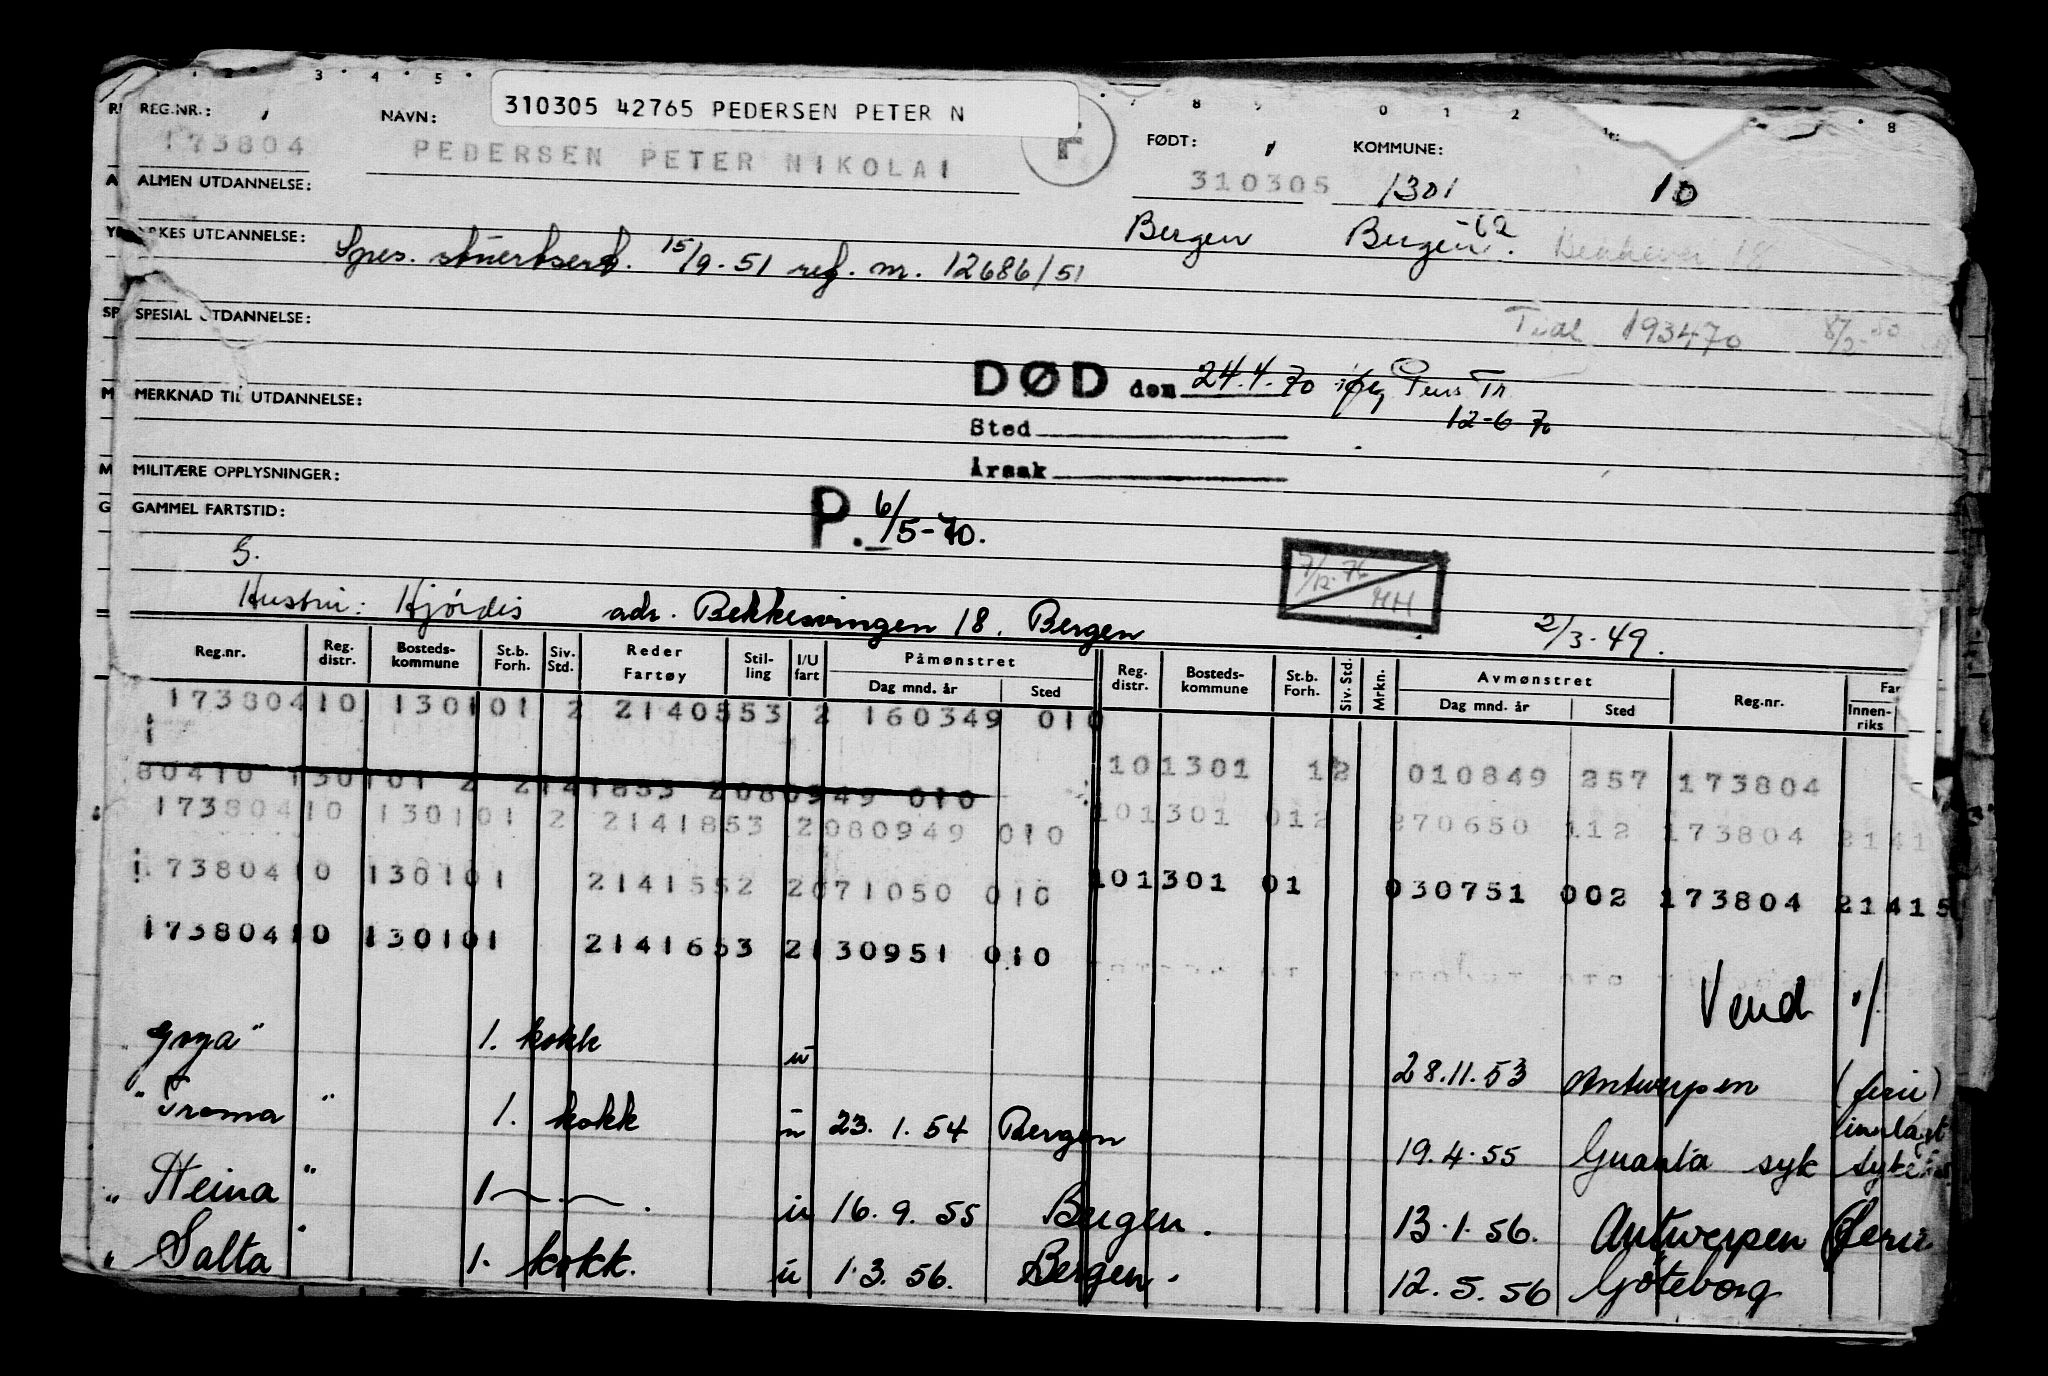 310305 42765 PEDERSEN PETER N
REG.NR.: NAVN: FØDT: KOMMUNE:
173804 PEDERSEN PETER NIKOLAI F 310305 1301 10
ALMEN UTDANNELSE:
Bergen Bergen -62
YRKES UTDANNELSE: Spes. stuertsert. 15/9-51 ref. nr. 12686/51
SPESIAL UTDANNELSE: 193470
MERKNAD TIL UTDANNELSE:
DØD den 24.4.70 iflg Pens Tr
12-6-70
Sted
Årsak
MILITÆRE OPPLYSNINGER:
GAMMEL FARTSTID:
P. 6/5-70.
G.
7/12-76 HH
Hustru: Hjördis adr. Bekkesvingen 18, Bergen 2/3-49.
Reg.nr. Reg. distr. Bosteds-kommune St.b. Forh. Siv. Std. Reder Fartøy Stil-ling I/U fart Påmønstret Dag mnd. år Sted Reg. distr. Bosteds-kommune St.b. Forh. Siv. Std. Mrkn. Avmønstret Dag mnd. år Sted Reg.nr. Innen-riks
173804 10 1301 01 2 2140553 2 160349 010
101301 12 010849 257 173804
80410 130101 2 2141853 2080949 010
173804 10 1301 01 2 2141853 2080949 010 101301 012 270650 112 173804 2141
173804 10 1301 01 2141552 2071050 010 101301 01 030751 002 173804 21415
173804 10 1301 01 2141653 2130951 010
Vend
"Goya" 1. kokk u 28.11.53 Antwerpen (ferie)
"Troma" 1. kokk u 23.1.54 Bergen 19.4.55 Guanta syk innlagt
"Heina" 1 u 16.9.55 Bergen. 13.1.56. Antwerpen (Ferie
"Salta" 1. kokk. u 1.3.56. Bergen. 12.5.56 Göteborg